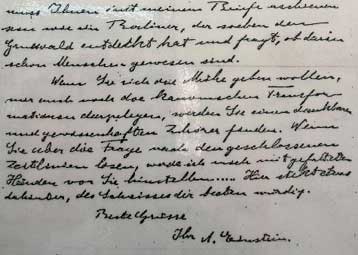 muss Ihnen mit meinem Briefe erscheinen
wie ein Berliner, der soeben den
Grunewald entdeckt hat und fragt, ob darin
schon Menschen gewesen sind.
Wenn Sie sich die Mühe geben wollen,
mir auch noch die kanonischen Transfor
mationen darzulegen, werden Sie einen dankbaren
und gewissenhaften Zuhörer finden. Wenn
Sie aber die Frage nach den geschlossenen
Zeitlinien lösen, werde ich mich mit gefalteten
Händen vor Sie hinstellen..... Hier steckt etwas
dahinter, des Schweisses der Besten würdig.
Beste Grüsse
Ihr A. Einstein.